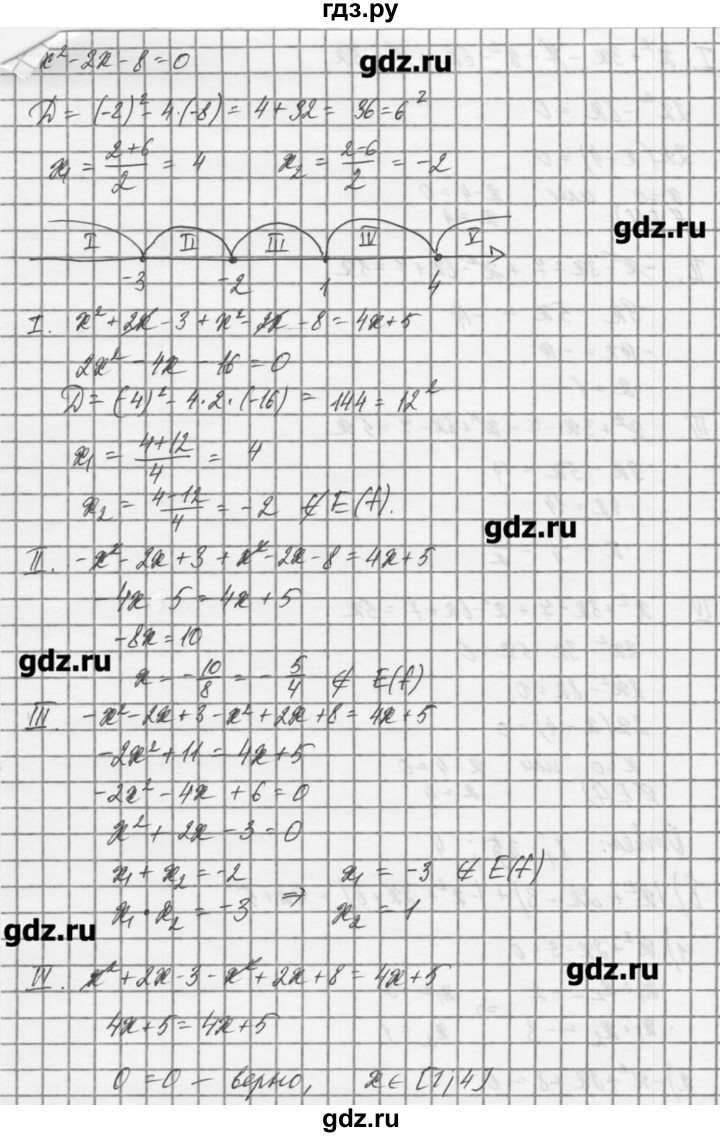 гдз.ру
x² - 2x - 8 = 0
gdz.ru
D = (-2)² - 4·(-8) = 4 + 32 = 36 = 6²
x₁ = (2+6)/2 = 4   x₂ = (2-6)/2 = -2
gdz.ru
I II III IV V
-3 -2 1 4
I. x² + 2x - 3 + x² - 2x - 8 = 4x + 5
2x² - 4x - 16 = 0
D = (-4)² - 4·2·(-16) = 144 = 12²
x₁ = (4+12)/4 = 4
x₂ = (4-12)/4 = -2 ∉ E(f).
gdz.ru
II. -x² - 2x + 3 + x² - 2x - 8 = 4x + 5
-4x - 5 = 4x + 5
-8x = 10
gdz.ru
x = -10/8 = -5/4 ∉ E(f)
III. -x² - 2x + 3 - x² + 2x + 8 = 4x + 5
-2x² + 11 = 4x + 5
-2x² - 4x + 6 = 0
x² + 2x - 3 = 0
x₁ + x₂ = -2   x₁ = -3 ∉ E(f)
⇒
x₁ · x₂ = -3   x₂ = 1
gdz.ru
gdz.ru
IV. x² + 2x - 3 - x² + 2x + 8 = 4x + 5
4x + 5 = 4x + 5
0 = 0 - верно, x ∈ [1; 4)
gdz.ru